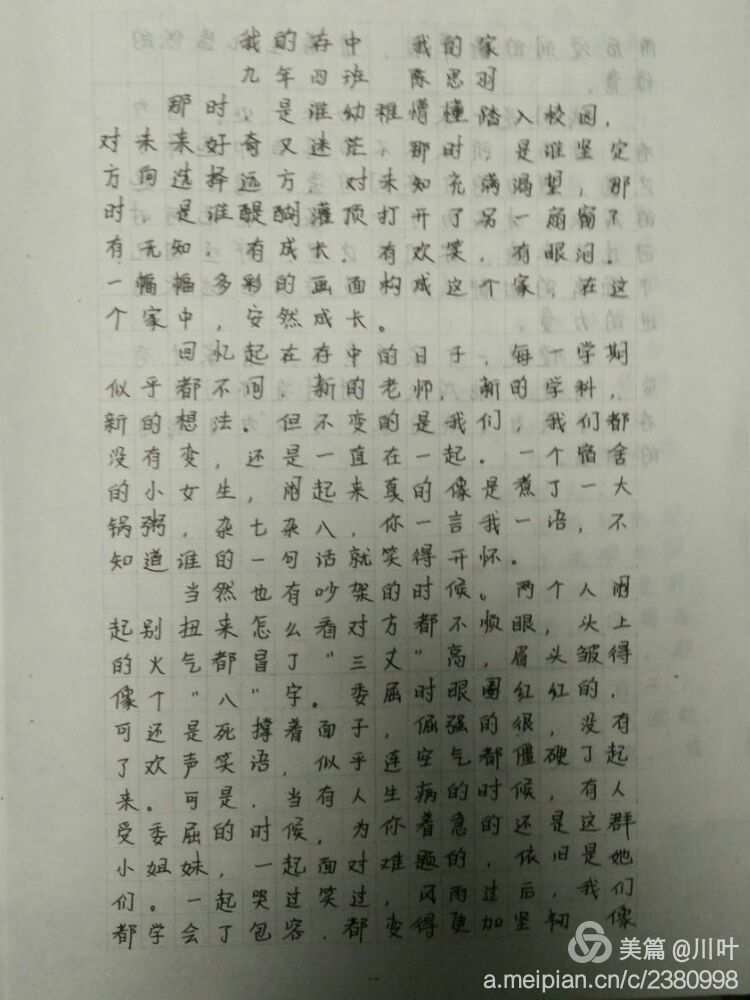 我的存中 我的家
九年四班 陈思羽
那时，是谁幼稚懵懂踏入校园，
对未来好奇又迷茫，那时，是谁坚定
方向选择远方，对未知充满渴望，那
时，是谁醍醐灌顶打开了另一扇窗？
有无知，有成长，有欢笑，有眼泪。
一幅幅多彩的画面构成这个家，在这
个家中，安然成长。
回忆起在存中的日子，每一学期
似乎都不同，新的老师，新的学科，
新的想法。但不变的是我们，我们都
没有变，还是一直在一起。一个宿舍
的小女生，闹起来真的像是煮了一大
锅粥，杂七杂八，你一言我一语，不
知道谁的一句话就笑得开怀。
当然也有吵架的时候。两个人闹
起别扭来怎么看对方都不顺眼，头上
的火气都冒了“三丈”高，眉头皱得
像个“八”字。委屈时眼圈红红的，
可还是死撑着面子，倔强的很，没有
了欢声笑语，似乎连空气都僵硬了起
来。可是，当有人生病的时候，有人
受委屈的时候，为你着急的还是这群
小姐妹，一起面对难题的，依旧是她
们。一起哭过笑过，风雨过后，我们
都学会了包容，都变得更加坚韧，像
美篇 @川叶
a.meipian.cn/c/2380998